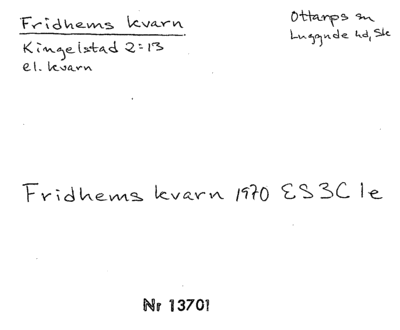 Fridhems kvarn
Kingelstad 2:13
el. kvarn
Ottarps sn
Luggude hd, Sk
Fridhems kvarn 1970 ES3C 1e
Nr 13701